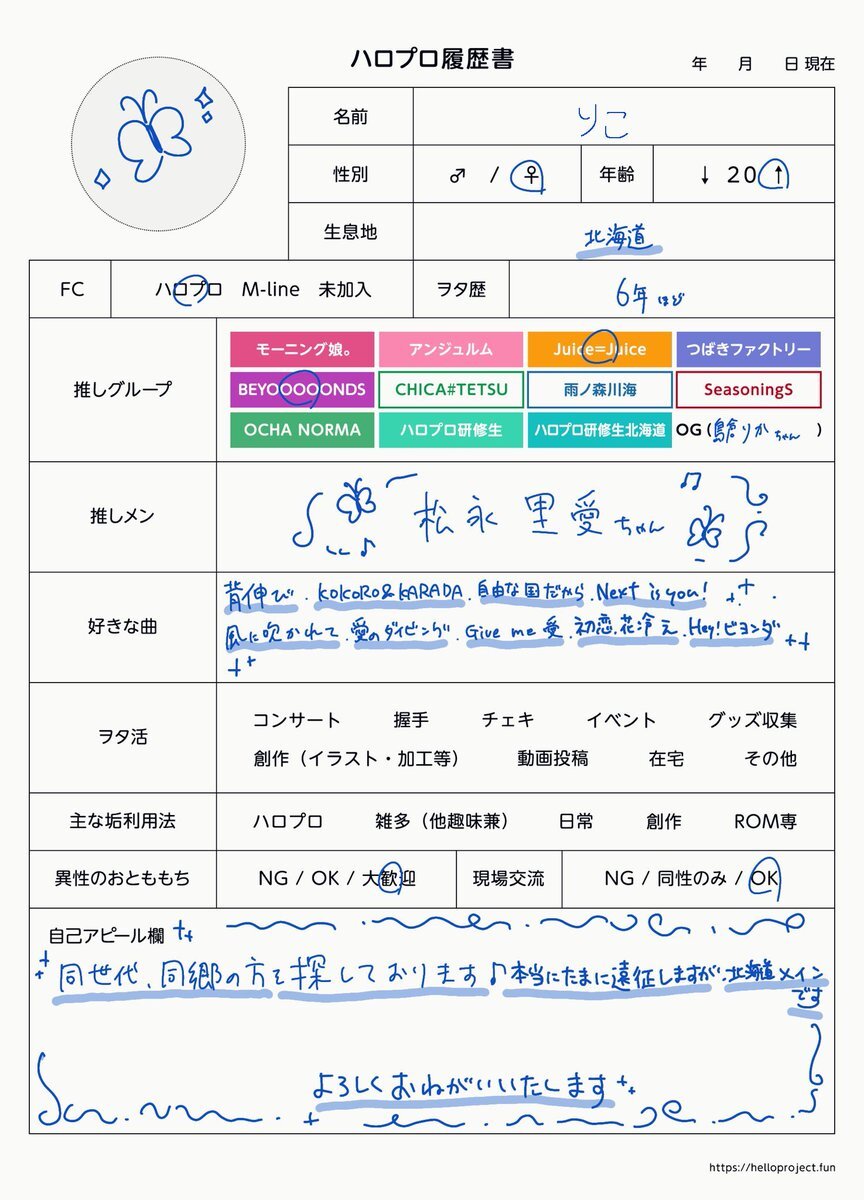 ハロプロ履歴書
年 月 日 現在
名前 りこ
性別 ♂ / ♀ 年齢 ↓ 20 ↑
生息地 北海道
FC ハロプロ M-line 未加入 ヲタ歴 6年ほど
推しグループ
モーニング娘。 アンジュルム Juice=Juice つばきファクトリー
BEYOOOOONDS CHICA#TETSU 雨ノ森川海 SeasoningS
OCHA NORMA ハロプロ研修生 ハロプロ研修生北海道 OG (島倉りかちゃん )
推しメン 松永里愛ちゃん
好きな曲
背伸び. KOKORO&KARADA. 自由な国だから. Next is you!
風に吹かれて. 愛のダイビング. Give me 愛. 初恋、花冷え. Hey!ビヨンダ
ヲタ活
コンサート 握手 チェキ イベント グッズ収集
創作（イラスト・加工等） 動画投稿 在宅 その他
主な垢利用法 ハロプロ 雑多（他趣味兼） 日常 創作 ROM専
異性のおとももち NG / OK / 大歓迎 現場交流 NG / 同性のみ / OK
自己アピール欄
同世代、同郷の方を探しております♪本当にたまに遠征しますが、北海道メイン
です
よろしくおねがいいたします
https://helloproject.fun